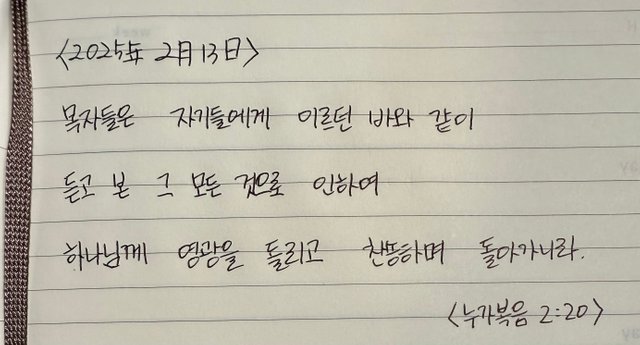 <2025年 2月 13日>
목자들은 자기들에게 이르던 바와 같이
듣고 본 그 모든 것으로 인하여
하나님께 영광을 돌리고 찬송하며 돌아가니라.
<누가복음 2:20>